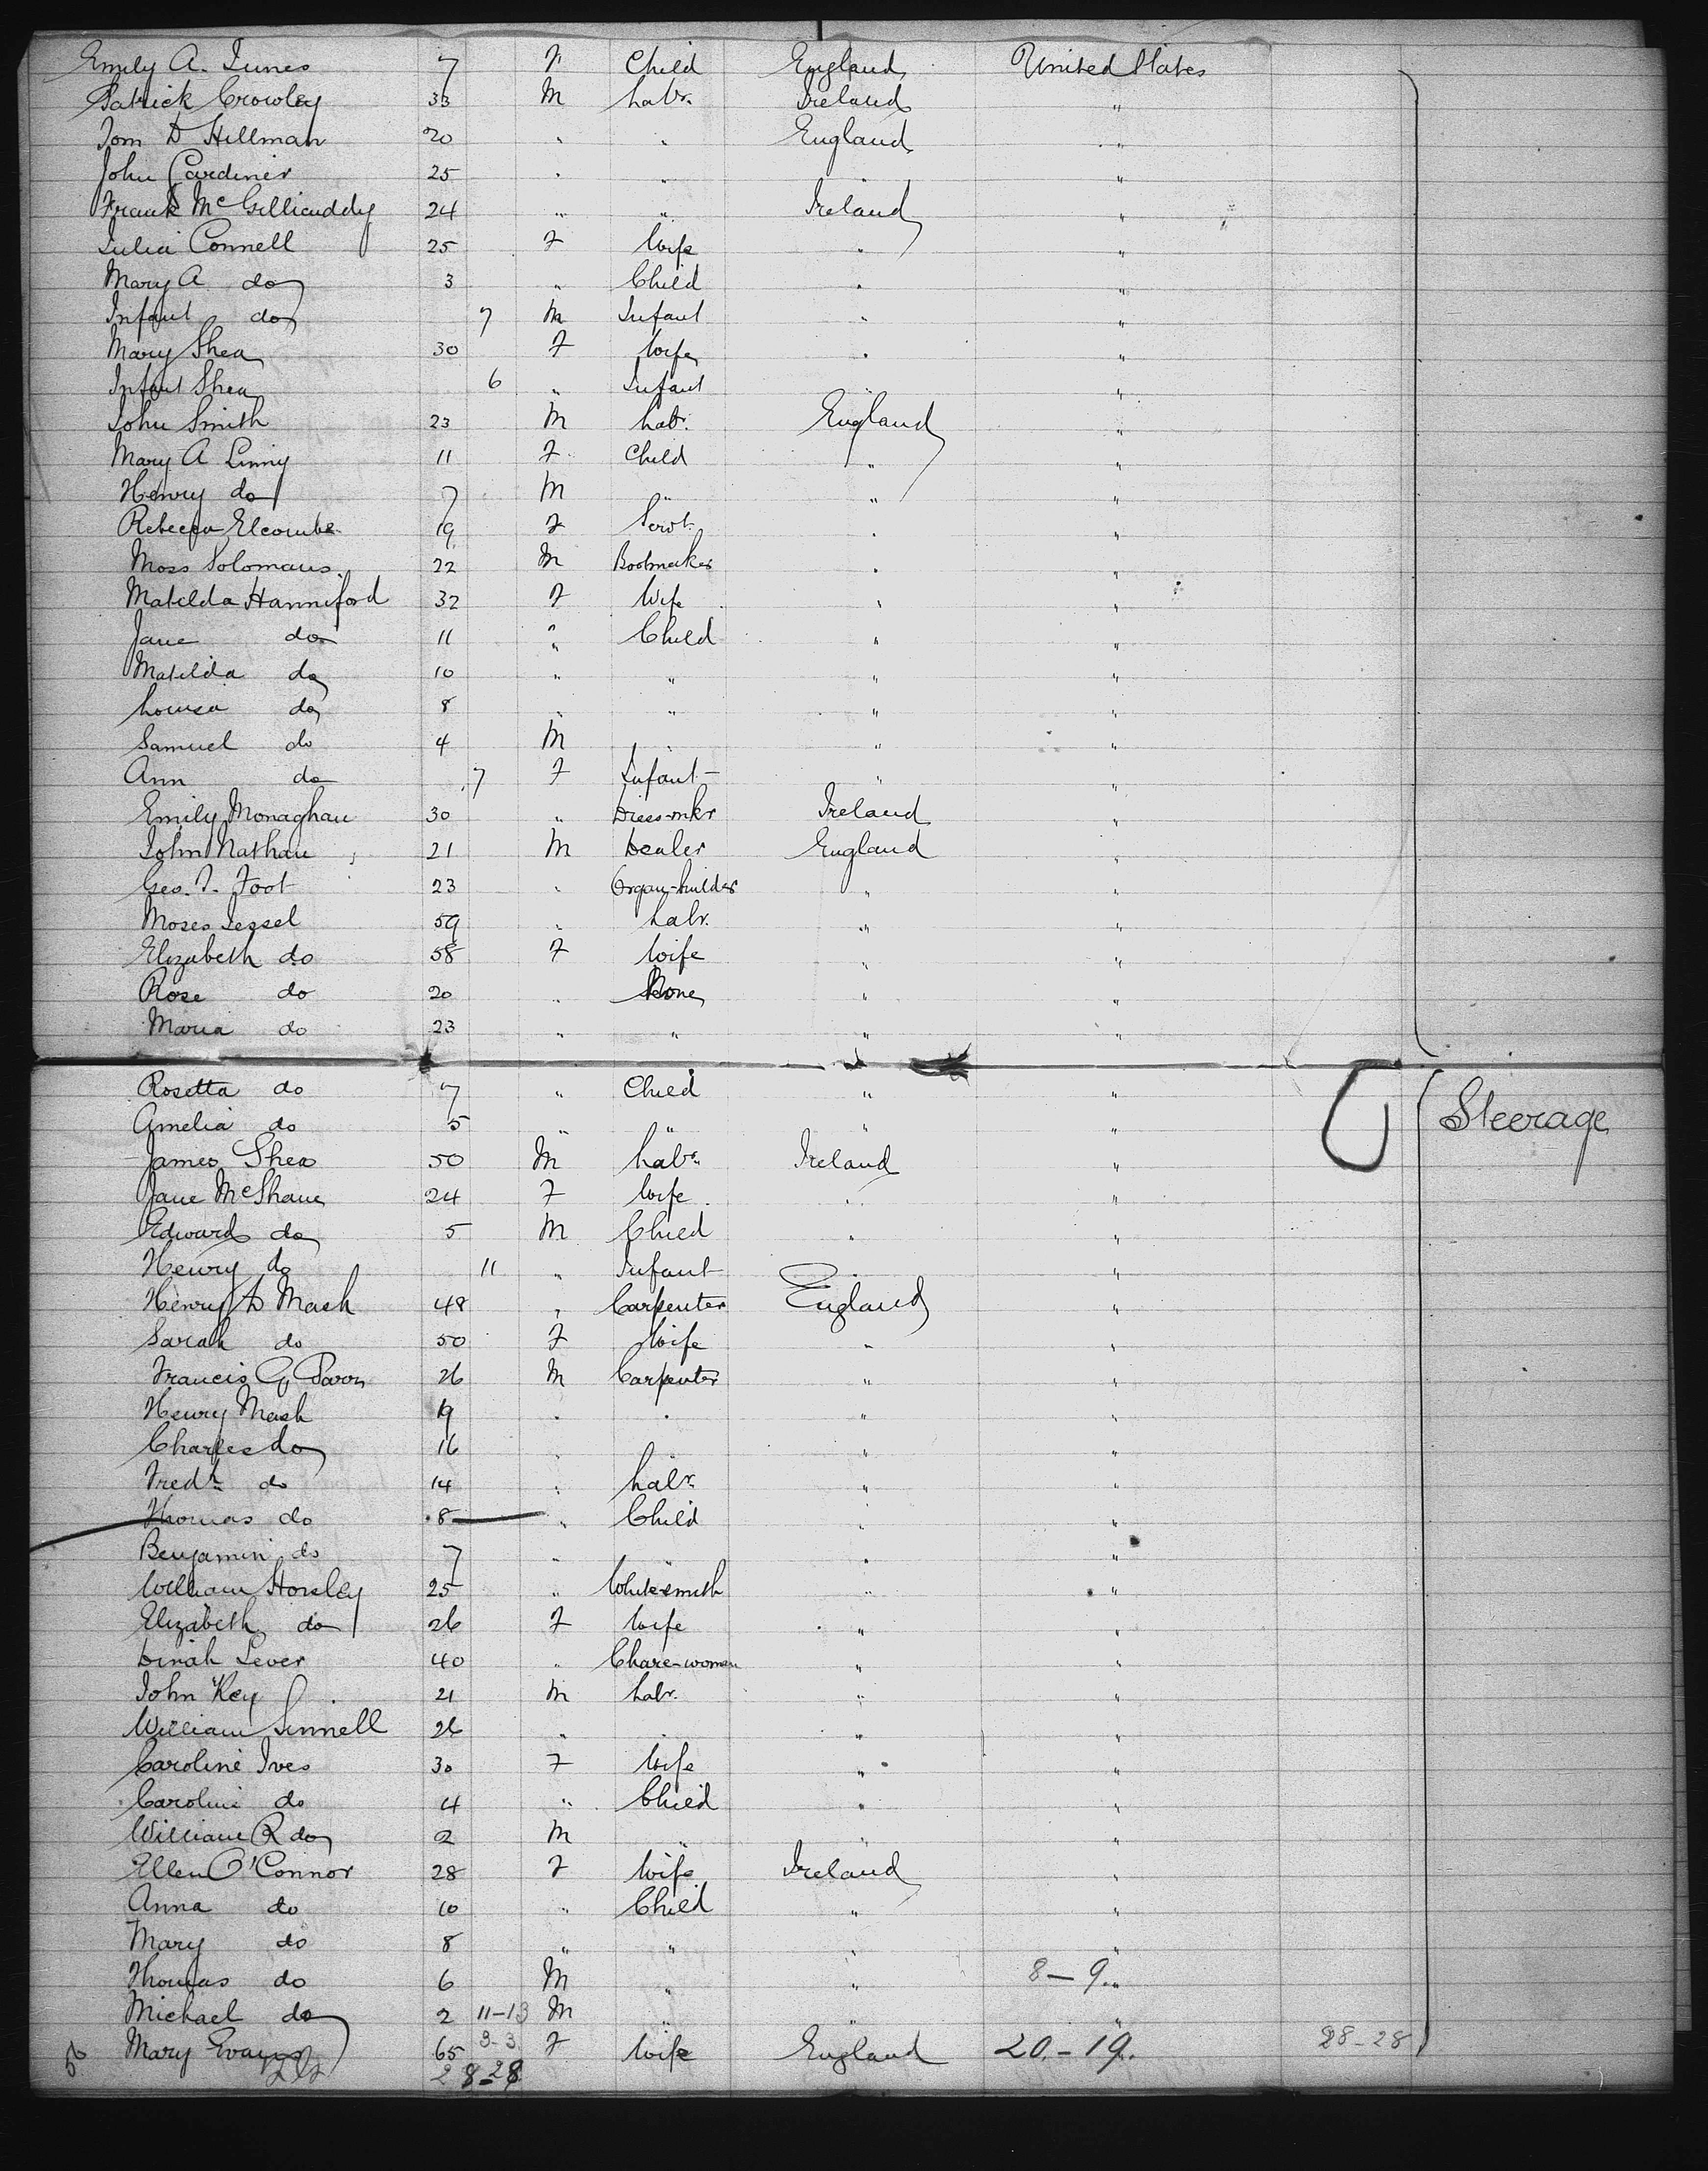 Emily A. Innes 7 F Child England United States
Patrick Crowley 33 M Labr. Ireland "
Tom D Hillman 20 " " England "
John Gardiner 25 " " "
Frank McGillicuddy 24 " " Ireland "
Julia Connell 25 F Wife " "
Mary A do 3 " Child " "
Infant do 7 M Infant " "
Mary Shea 30 F Wife " "
Infant Shea 6 " Infant " "
John Smith 23 M Labr. England "
Mary A Linny 11 F Child " "
Henry do 7 M " " "
Rebecca Elcombe 19 F Servt. " "
Moss Solomans 22 M Bootmaker " "
Matilda Hanniford 32 F Wife " "
Jane do 11 " Child " "
Matilda do 10 " " " "
Louisa do 8 " " " "
Samuel do 4 M " " "
Ann do 7 F Infant " "
Emily Monaghan 30 " Dress-mkr Ireland "
John Nathan 21 M Dealer England "
Geo. T. Foot 23 " Organ-builder " "
Moses Jessel 59 " Labr. " "
Elizabeth do 58 F Wife " "
Rose do 20 " None " "
Maria do 23 " " " "
Rosetta do 7 " Child " "
Amelia do 5 " " " " Steerage
James Shea 50 M Labr. Ireland "
Jane McShane 24 F Wife " "
Edward do 5 M Child " "
Henry do 11 " Infant " "
Henry D Mash 48 " Carpenter England "
Sarah do 50 F Wife " "
Francis G 26 M Carpenter " "
Henry Mash 19 " " " "
Charles do 16 " " "
Fredk do 14 " Labr. " "
Thomas do 8 " Child " "
Benjamin do 7 " " " "
William Horsley 25 " Whitesmith " "
Elizabeth do 26 F Wife " "
Dinah Lever 40 " Chare-woman " "
John Key 21 M Labr. " "
William Sinnell 26 " " " "
Caroline Ives 30 F Wife " "
Caroline do 4 " Child " "
William R do 2 M " " "
Ellen O'Connor 28 F Wife Ireland "
Anna do 10 " Child " "
Mary do 8 " " " "
Thomas do 6 M " " 8-9 "
Michael do 2 11-13 M " " "
56 Mary Evans 65 3-3 F Wife England 20-19 " 28-28
28-28